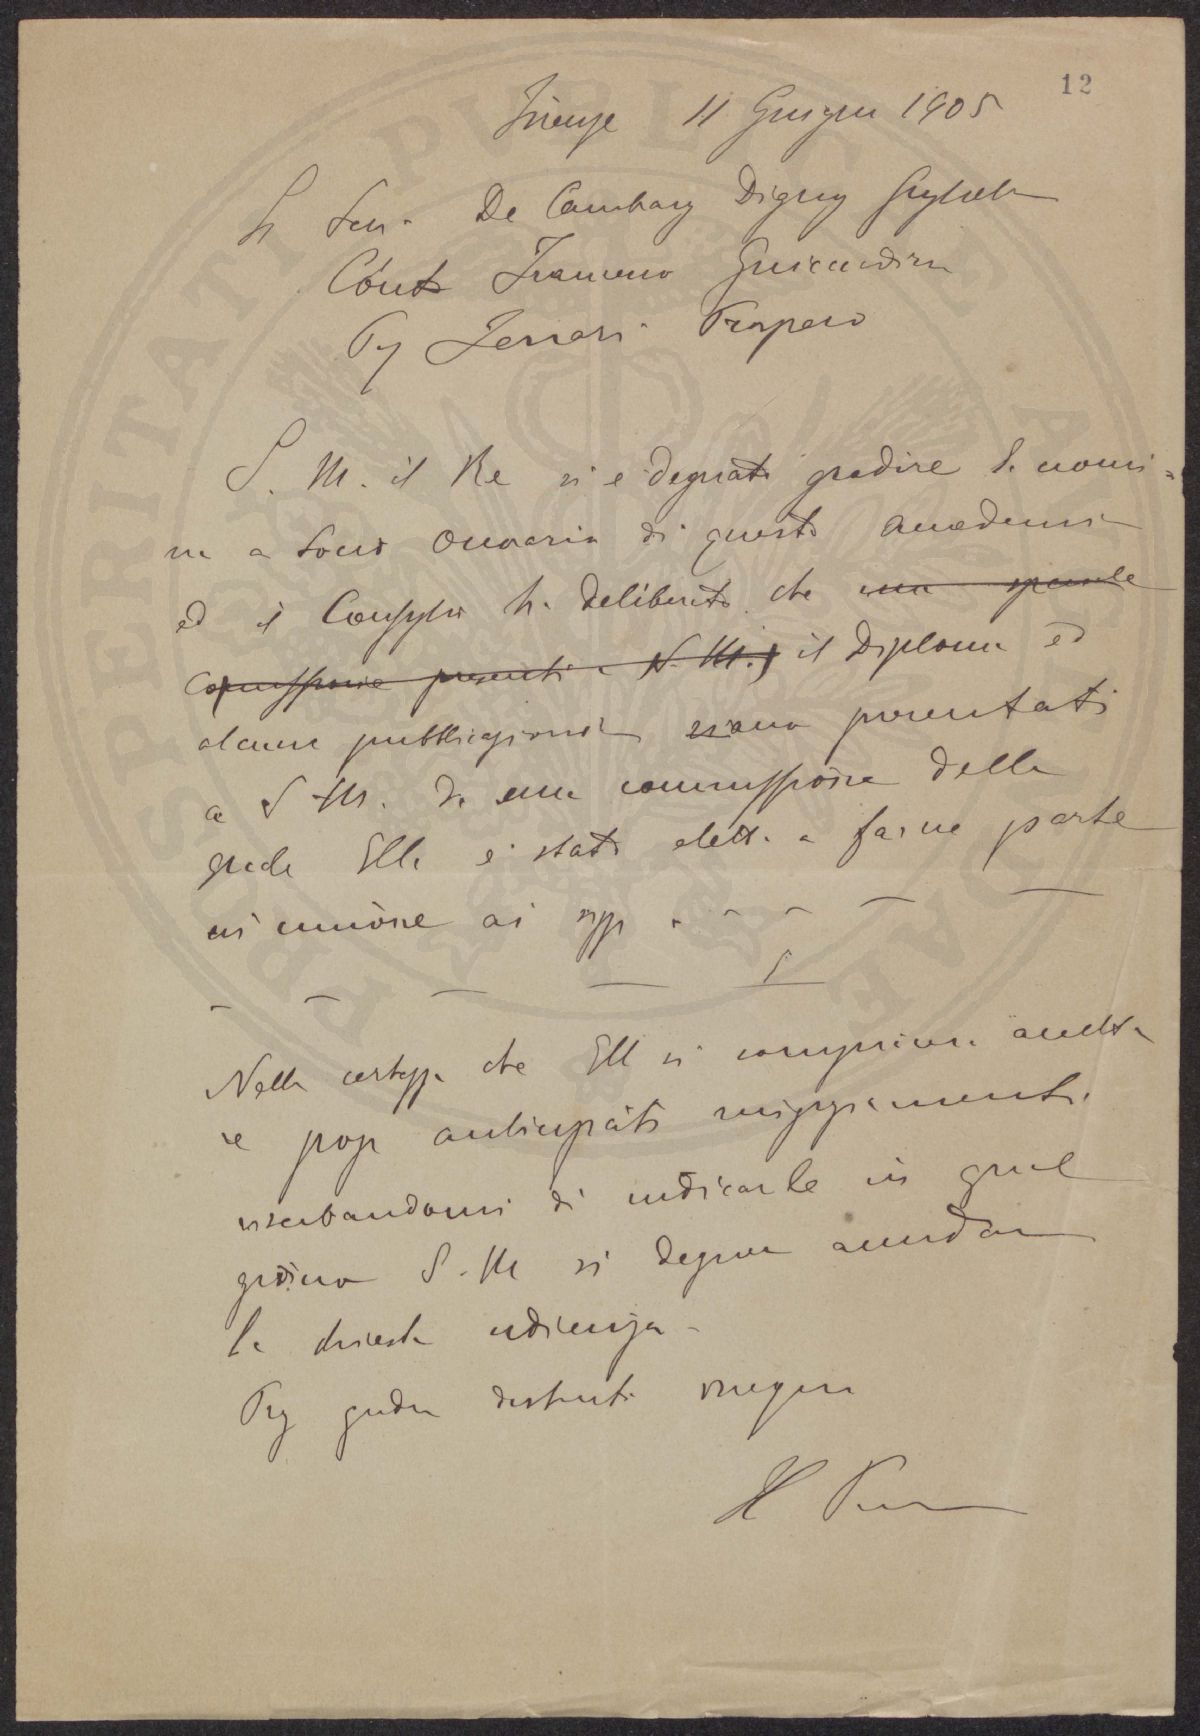 12
Firenze 11 Giugno 1905
Sen. De Cambray Digny Guglielmo
Conte Francesco Guicciardini
Ferrari Prospero
S. M. il Re si è degnato gradire la nomi=
na a Socio Onorario di questa Accademia
ed il Consiglio ha deliberato che una speciale
Commissione presenti a S. M. il Diploma ed
alcune pubblicazioni siano presentati
a S. M. da una commissione della
quale Ella è stato eletto a farne parte
in unione ai sigg.
Nella certezza che Ella si compiacerà accetta
re porgo anticipati ringraziamenti
riserbandomi di indicarle in qual
giorno S. M. si degna accordare
la chiesta udienza.
distinti ossequi
PROSPERITATI PUBLICAE AUGENDAE